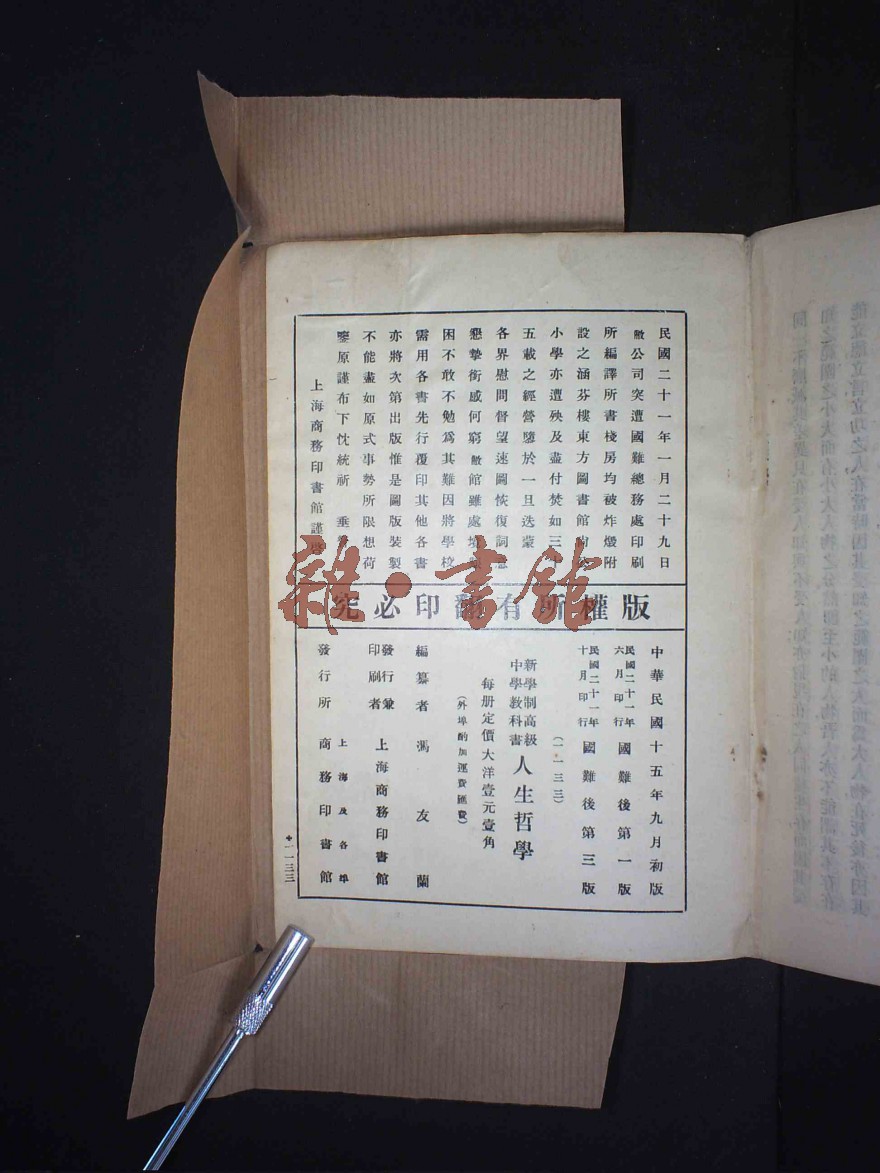 民國二十一年一月二十九日
敝公司突遭國難總務處印刷
所編譯所書棧房均被炸燬附
設之涵芬樓東方圖書館
小學亦遭殃及盡付焚如三
五載之經營隳於一旦迭蒙
各界慰問督望速圖恢復詞意
懇摯銜感何窮敝館雖處境
困不敢不勉爲其難因將學校
需用各書先行覆印其他各書
亦將次第出版惟是圖版裝製
不能盡如原式事勢所限想荷
鑒原謹布下忱統祈 垂
上海商務印書館謹啓
版權所有翻印必究
中華民國十五年九月初版
民國二十一年六月印行 國難後第一版
民國二十一年十月印行 國難後第三版
(一一三三)
新學制高級中學教科書 人生哲學
每册定價大洋壹元壹角
(外埠酌加運費匯費)
編纂者 馮友蘭
發行兼印刷者 上海商務印書館
發行所 上海及各埠 商務印書館
雜·書館